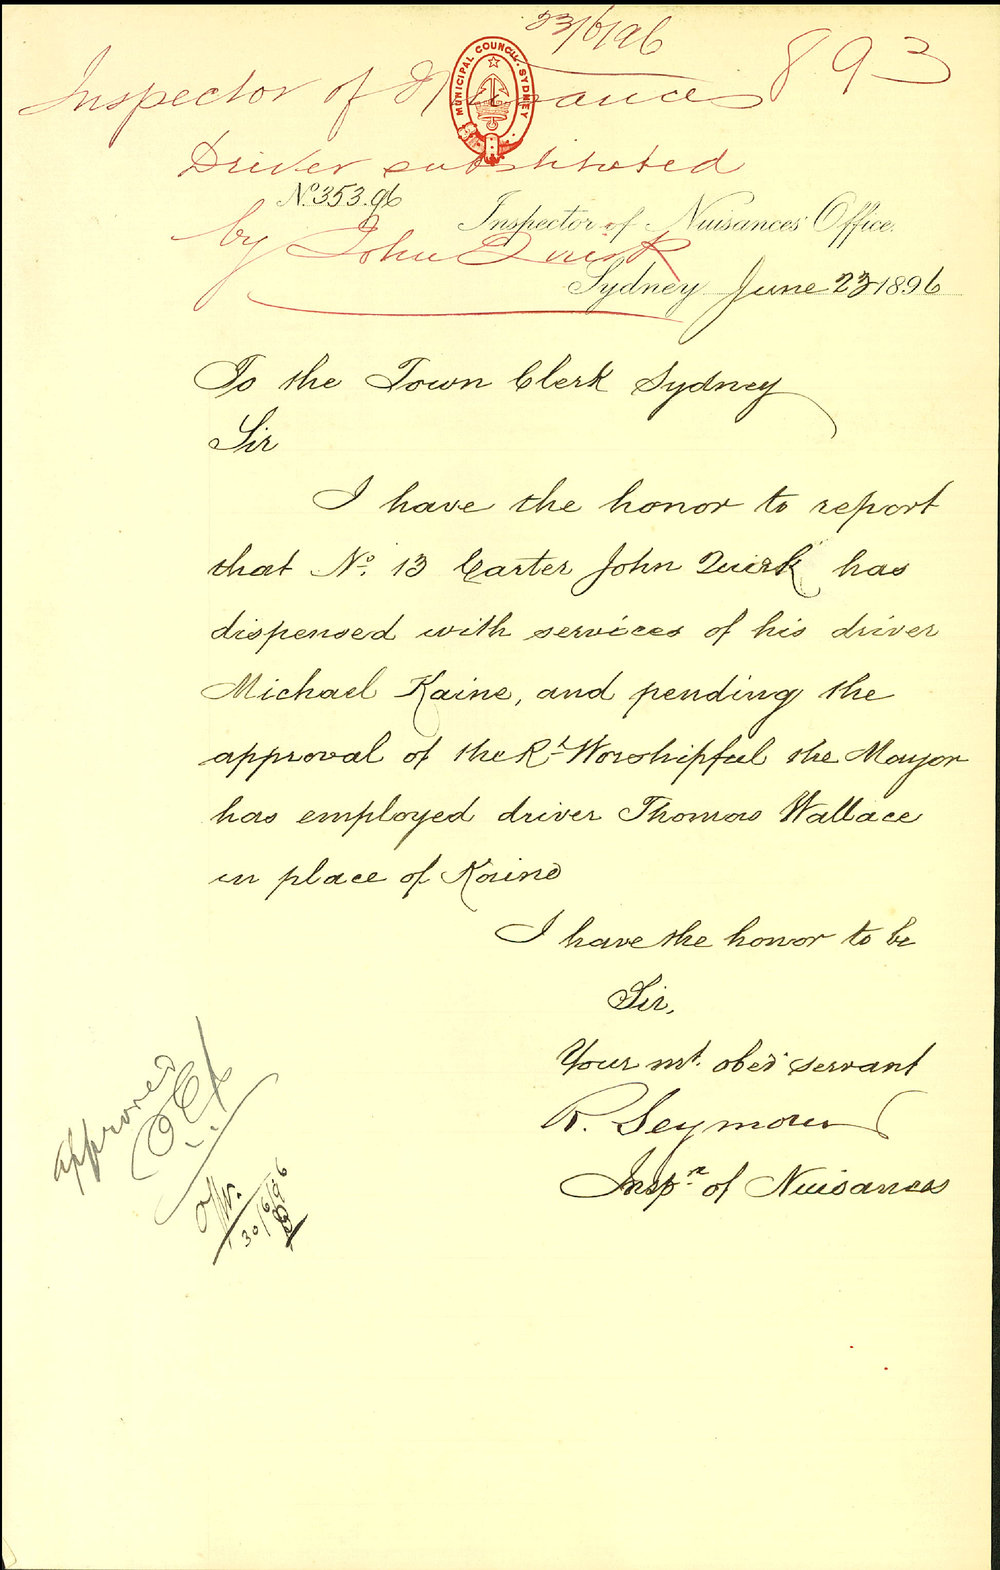 23/6/96
893
Inspector of Nuisances
MUNICIPAL COUNCIL · SYDNEY
Driver substituted
No. 353.96
Inspector of Nuisances Office.
by John Quirk
Sydney June 23 1896
To the Town Clerk Sydney
Sir
I have the honor to report
that No. 13 Carter John Quirk has
dispensed with services of his driver
Michael Kaine, and pending the
approval of the Rt Worshipful the Mayor
has employed driver Thomas Wallace
in place of Kaine
I have the honor to be
Sir,
Your mt. obed servant
R. Seymour
Inspr of Nuisances
Approved
30/6/96